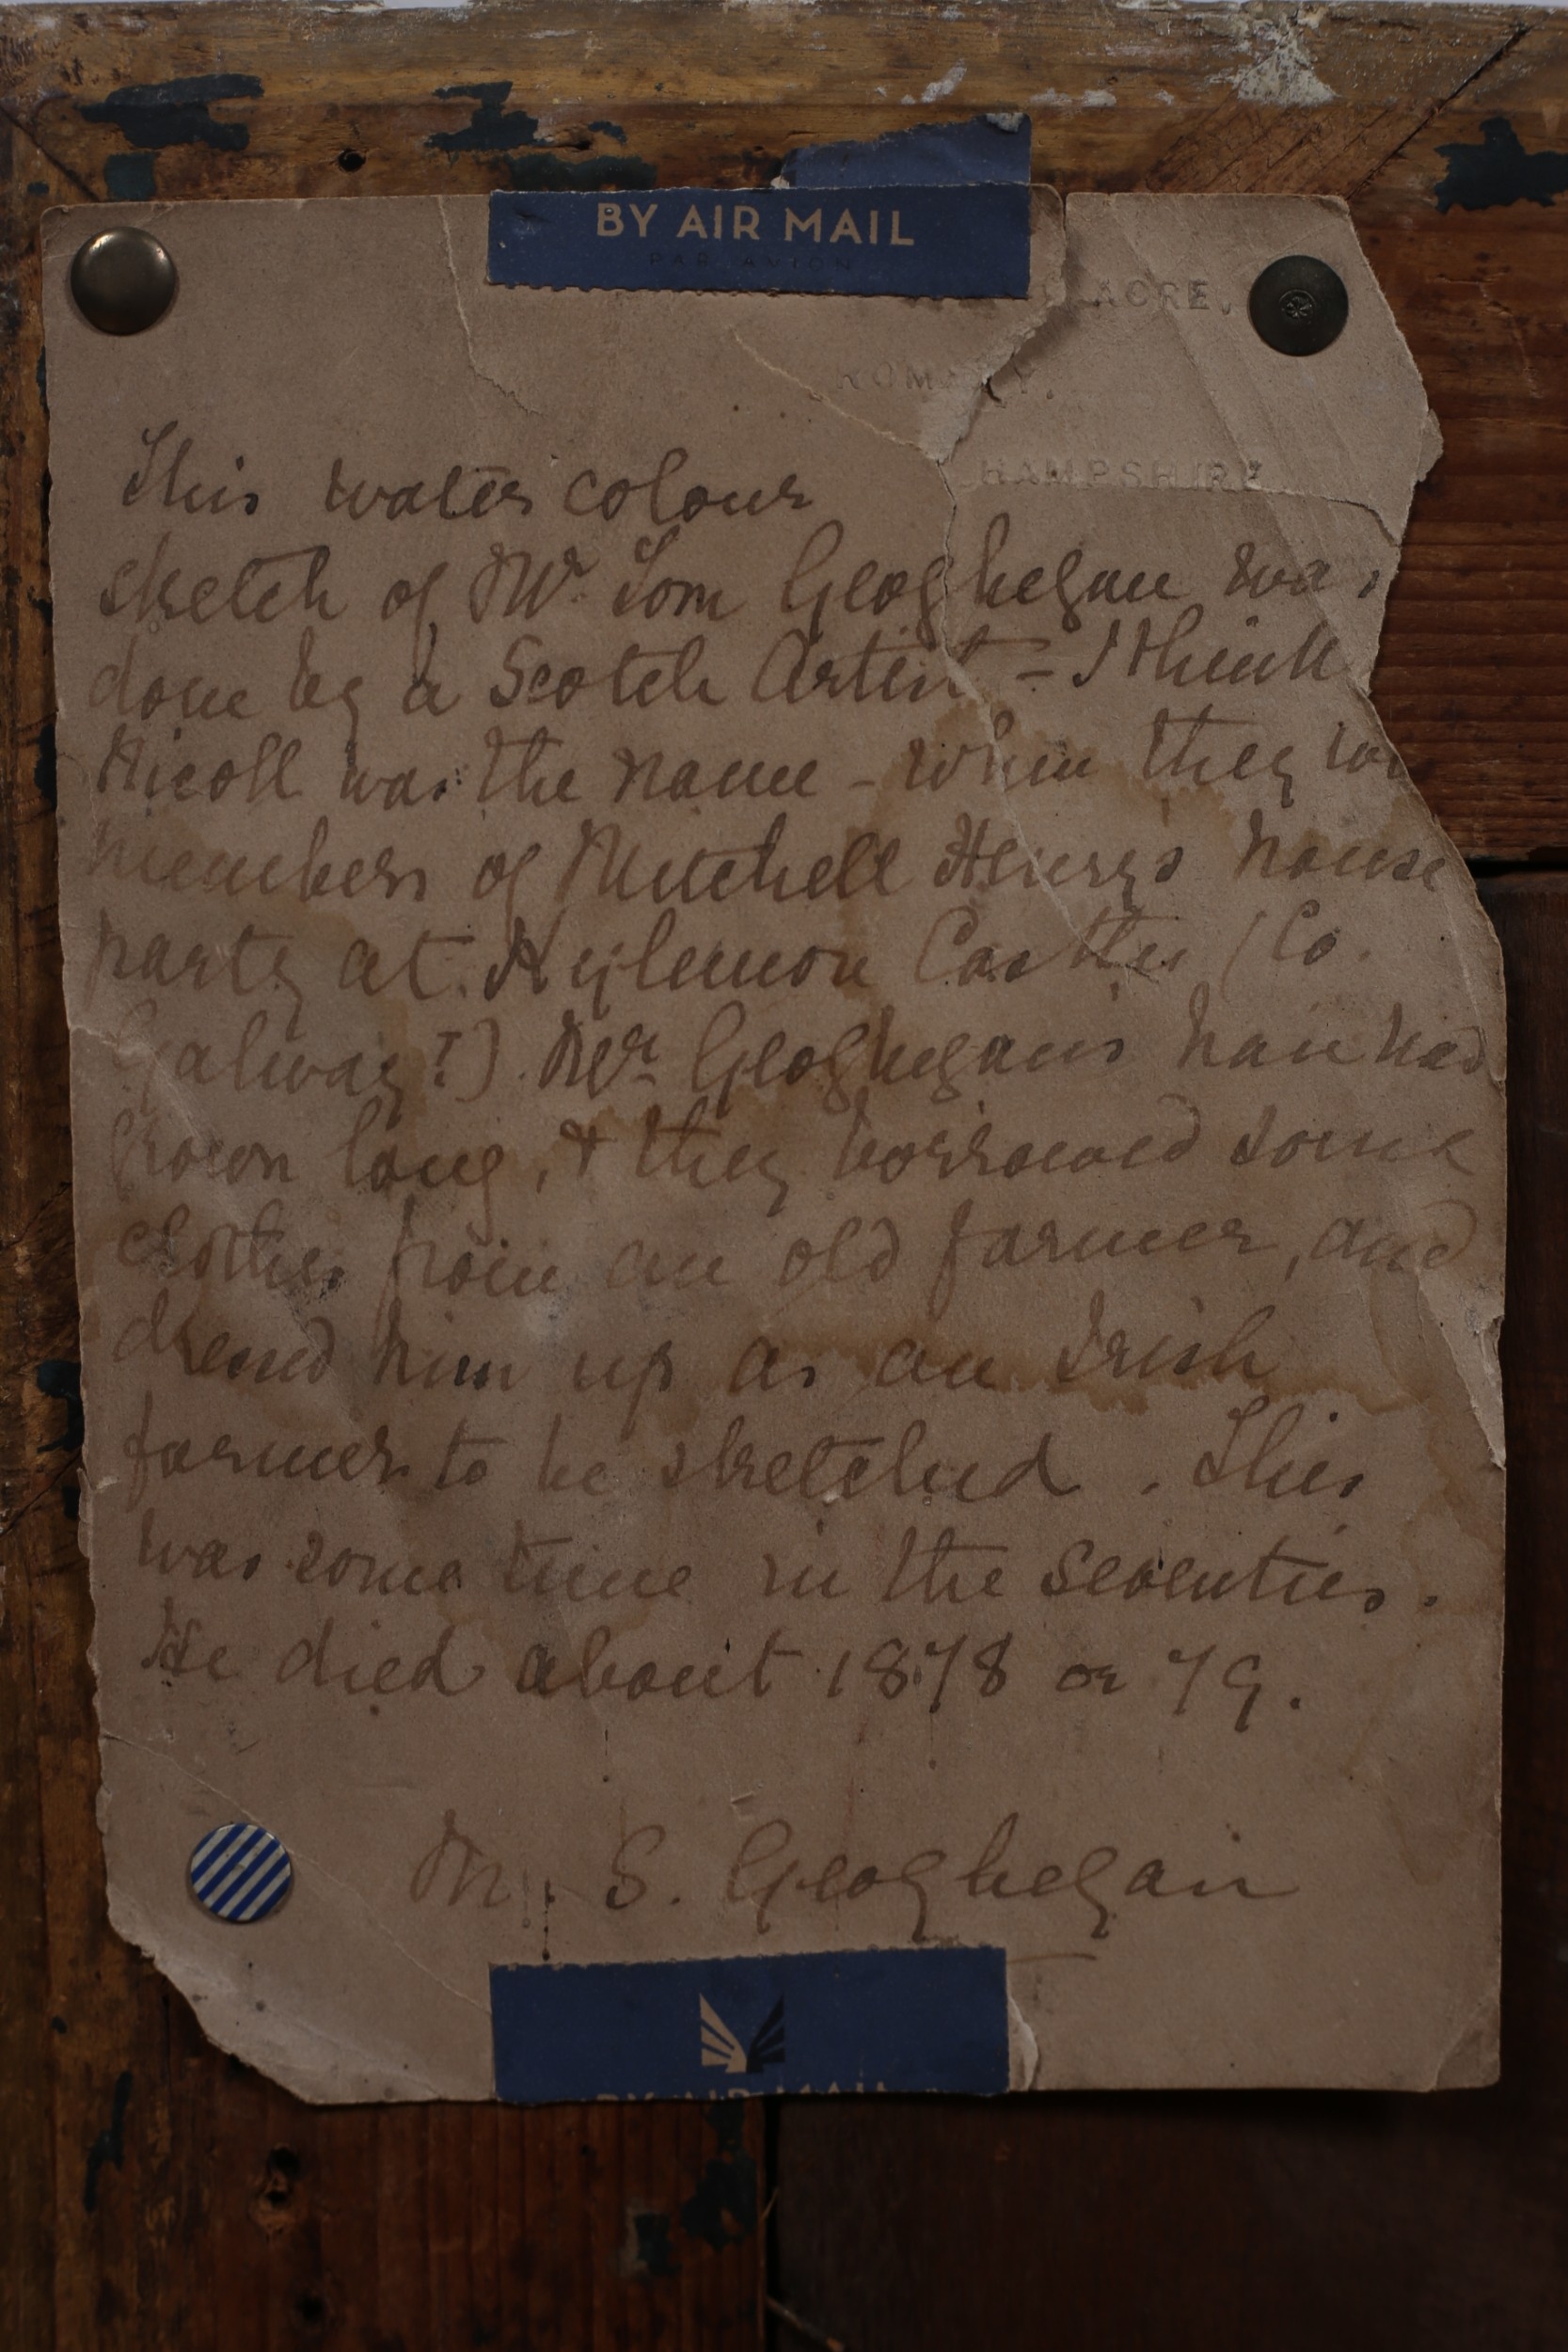 BY AIR MAIL
PAR AVION
ACRE,
HAMPSHIRE
This water colour
sketch of Mr. Tom Geoghegan was
done by a Scotch Artist - I think
Nicoll was the name - when they
members of Mitchell Henrys house
party at Kylemore Castle (Co.
Galway?). Mr. Geoghegan's hair had
grown long, & they borrowed some
clothes from an old farmer, and
dressed him up as an Irish
farmer to be sketched. This
was some time in the seventies.
He died about 1878 or 79.
M. S. Geoghegan
BY AIR MAIL